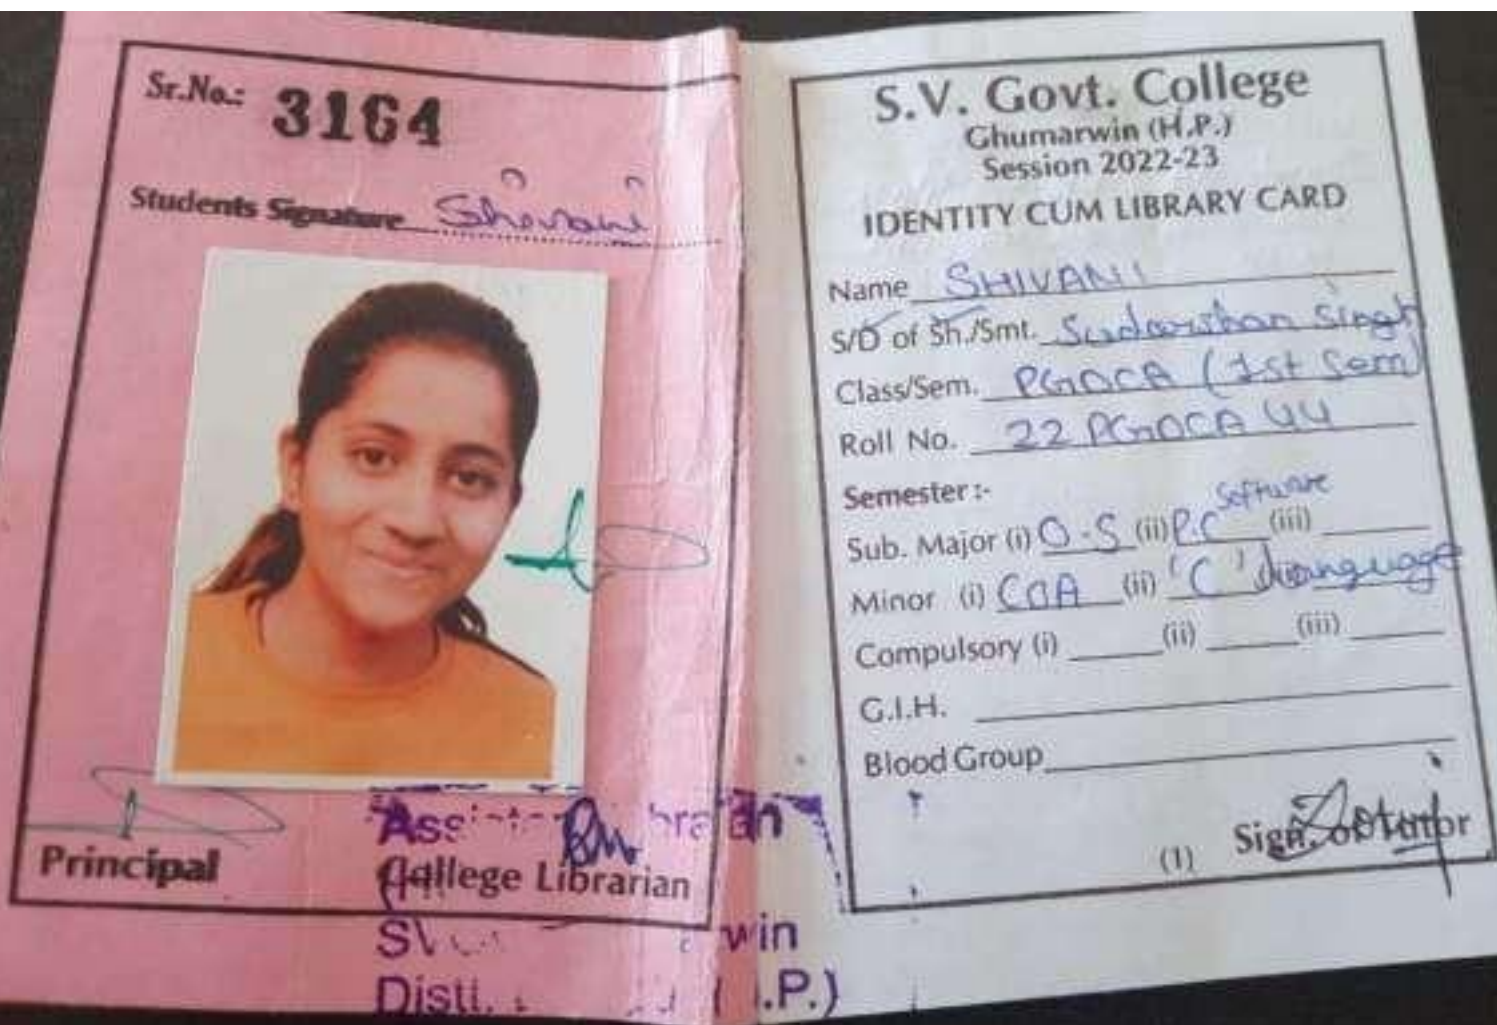 Sr.No.: 3164
Students Signature Shivani
Principal
College Librarian
win
Distt.
.P.)
S.V. Govt. College
Ghumarwin (H.P.)
Session 2022-23
IDENTITY CUM LIBRARY CARD
Name SHIVANI
S/D of Sh./Smt. Sudarshan Singh
Class/Sem. PGDCA (1st Sem)
Roll No. 22 PGDCA 44
Semester :-
Sub. Major (i) O.S (ii) P.C Software (iii)
Minor (i) COA (ii) 'C' Language
Compulsory (i) (ii) (iii)
G.I.H.
Blood Group
(1) Sign. of Tutor